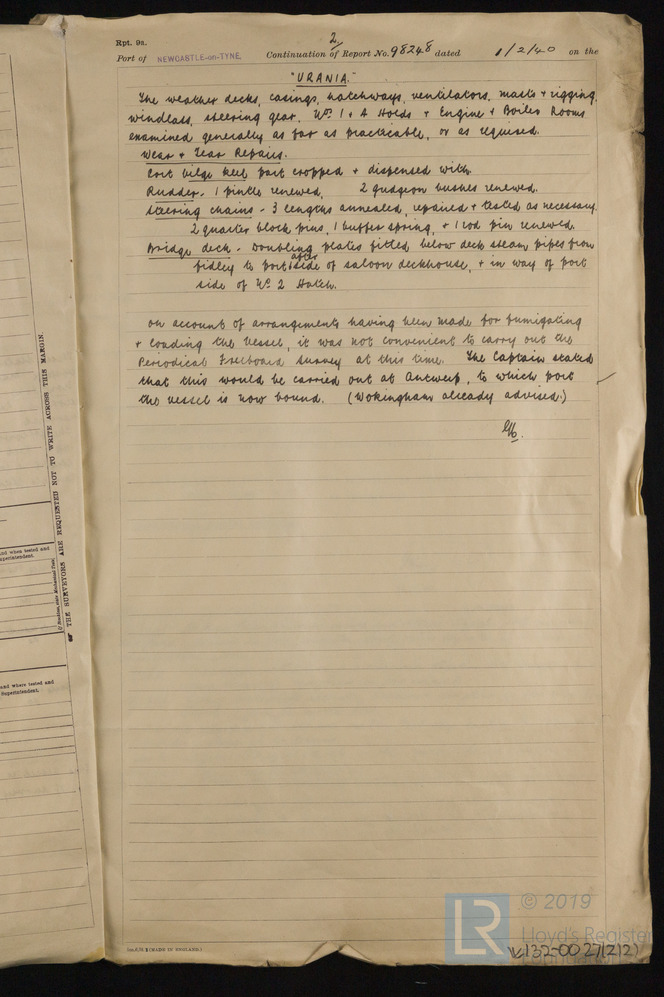 Rpt. 9a.
2
Port of NEWCASTLE-on-TYNE. Continuation of Report No. 98248 dated 1/2/40 on the
"URANIA."
The weather decks, casings, hatchways, ventilators, masts + rigging,
windlass, steering gear, Nos 1 + 4 Holds + Engine + Boiler Rooms
examined generally as far as practicable, or as required.
Wear + Tear Repairs.
Port bilge keel part cropped + dispensed with.
Rudder - 1 pintle renewed, 2 gudgeon bushes renewed.
Steering chains - 3 lengths annealed, repaired + tested as necessary.
2 quarter block pins, 1 buffer spring, + 1 rod pin renewed.
Bridge deck - Doubling plates fitted below deck steam pipes from
fidley to port after side of saloon deckhouse, + in way of port
side of No 2 Hatch.
On account of arrangements having been made for fumigating
+ loading the vessel, it was not convenient to carry out the
Periodical Freeboard Survey at this time. The Captain stated
that this would be carried out at Antwerp, to which port
the vessel is now bound. (Wokingham already advised.)
THE SURVEYORS ARE REQUESTED NOT TO WRITE ACROSS THIS MARGIN.
and when tested and
Superintendent.
and where tested and
Superintendent.
(MADE IN ENGLAND.)
LR
© 2019
Lloyd's Register
Foundation
W132-0027(2/2)